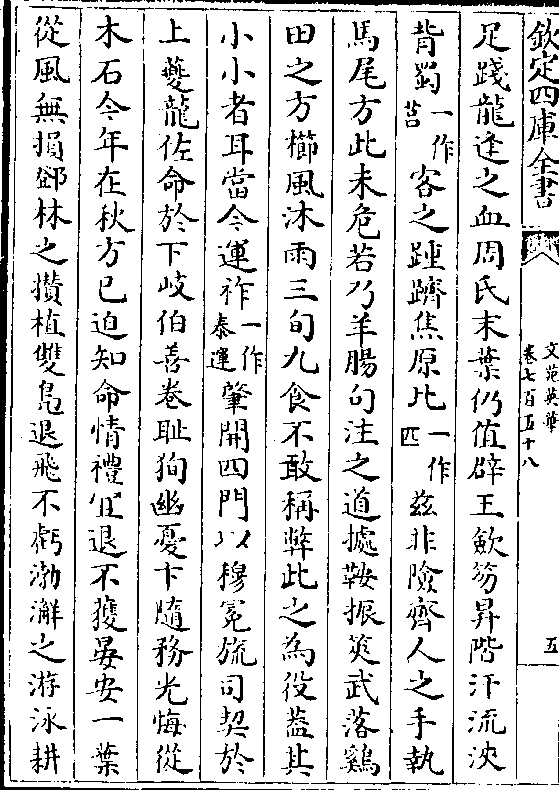 欽定四庫全書
文苑英華
卷七百五十八
五
足踐龍逄之血周氏末葉仍值辟王歛笏昇階汗流浹
背蜀一作莒客之踵躋焦原比一作匹兹非險齊人之手執
馬尾方此未危若乃羊腸句注之道據鞍振筴武落鷄
田之方櫛風沐雨三旬九食不敢稱弊此之為役葢其
小小者耳當今運祚一作泰運肇開四門以穆冕旒司契於
上夔龍佐命於下岐伯善卷恥狥幽憂卞隨務光悔從
木石今年在秋方已迫知命情禮宜退不獲晏安一葉
從風無損鄧林之攢植雙鳧退飛不虧渤澥之游泳耕